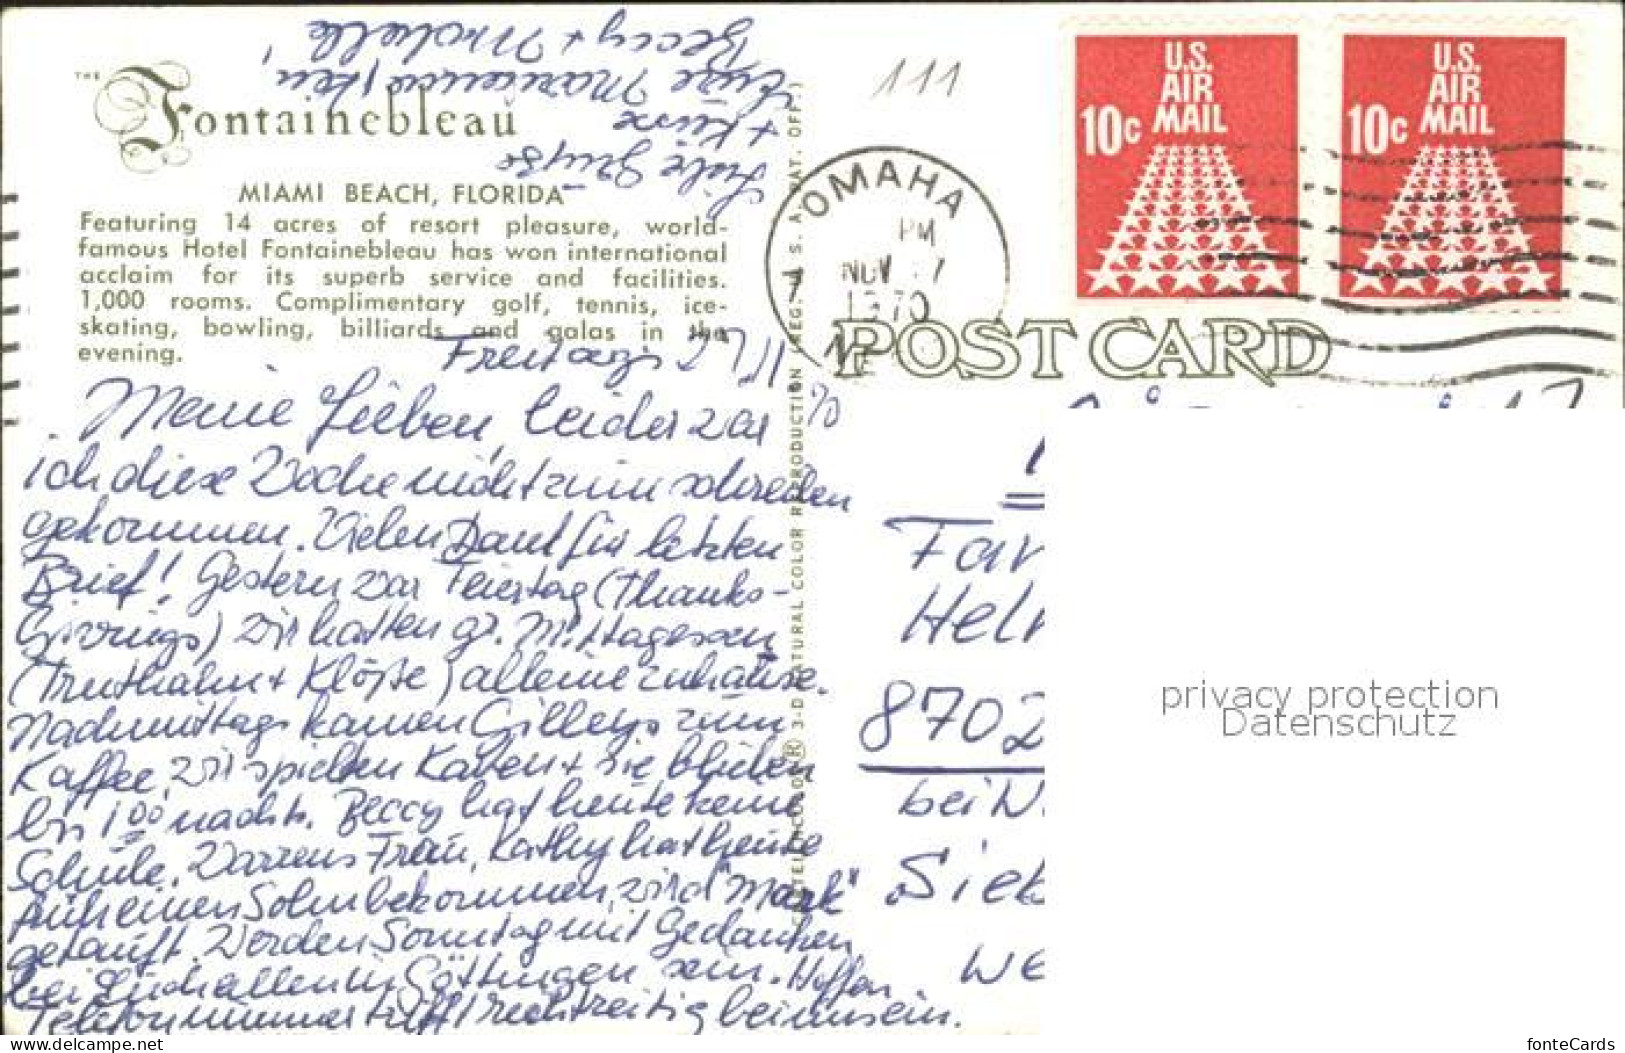 THE
Fontainebleau
MIAMI BEACH, FLORIDA
Featuring 14 acres of resort pleasure, world-
famous Hotel Fontainebleau has won international
acclaim for its superb service and facilities.
1,000 rooms. Complimentary golf, tennis, ice-
skating, bowling, billiards and galas in the
evening.
Freitag, 27/11 70
Meine Lieben, leider war
ich diese Woche nicht zum schreiben
gekommen. Vielen Dank für letzten
Brief! Gestern war Feiertag (Thanks-
Givvings) wir hatten gr. Mittagessen
(Truthahn + Klöße) alleine zuhause.
Nachmittags kamen Gilleys zum
Kaffee, wir spielten Karten + sie blieben
bis 1 00 nachts. Beccy hat heute keine
Schule. Warrens Frau, Kathy hat heute
früh einen Sohn bekommen, wird "Mark"
getauft. Werden Sonntag mit Gedanken
bei Euch allen in Göttingen sein. Hoffen
Telefonnummer trifft rechtzeitig bei uns ein.
Liebe Grüße
+ Küsse
Eure Marianne, Ken
Beccy + Michelle!
111
OMAHA
PM
NOV 27
1970
NE
U.S.
AIR
MAIL
10c
U.S.
AIR
MAIL
10c
POST CARD
3-D NATURAL COLOR REPRODUCTION (REG. U. S. A. PAT. OFF.)
Fam
Helm
8702
bei W.
Siek
WE
privacy protection
Datenschutz
https://www.delcampe.net
fonteCards